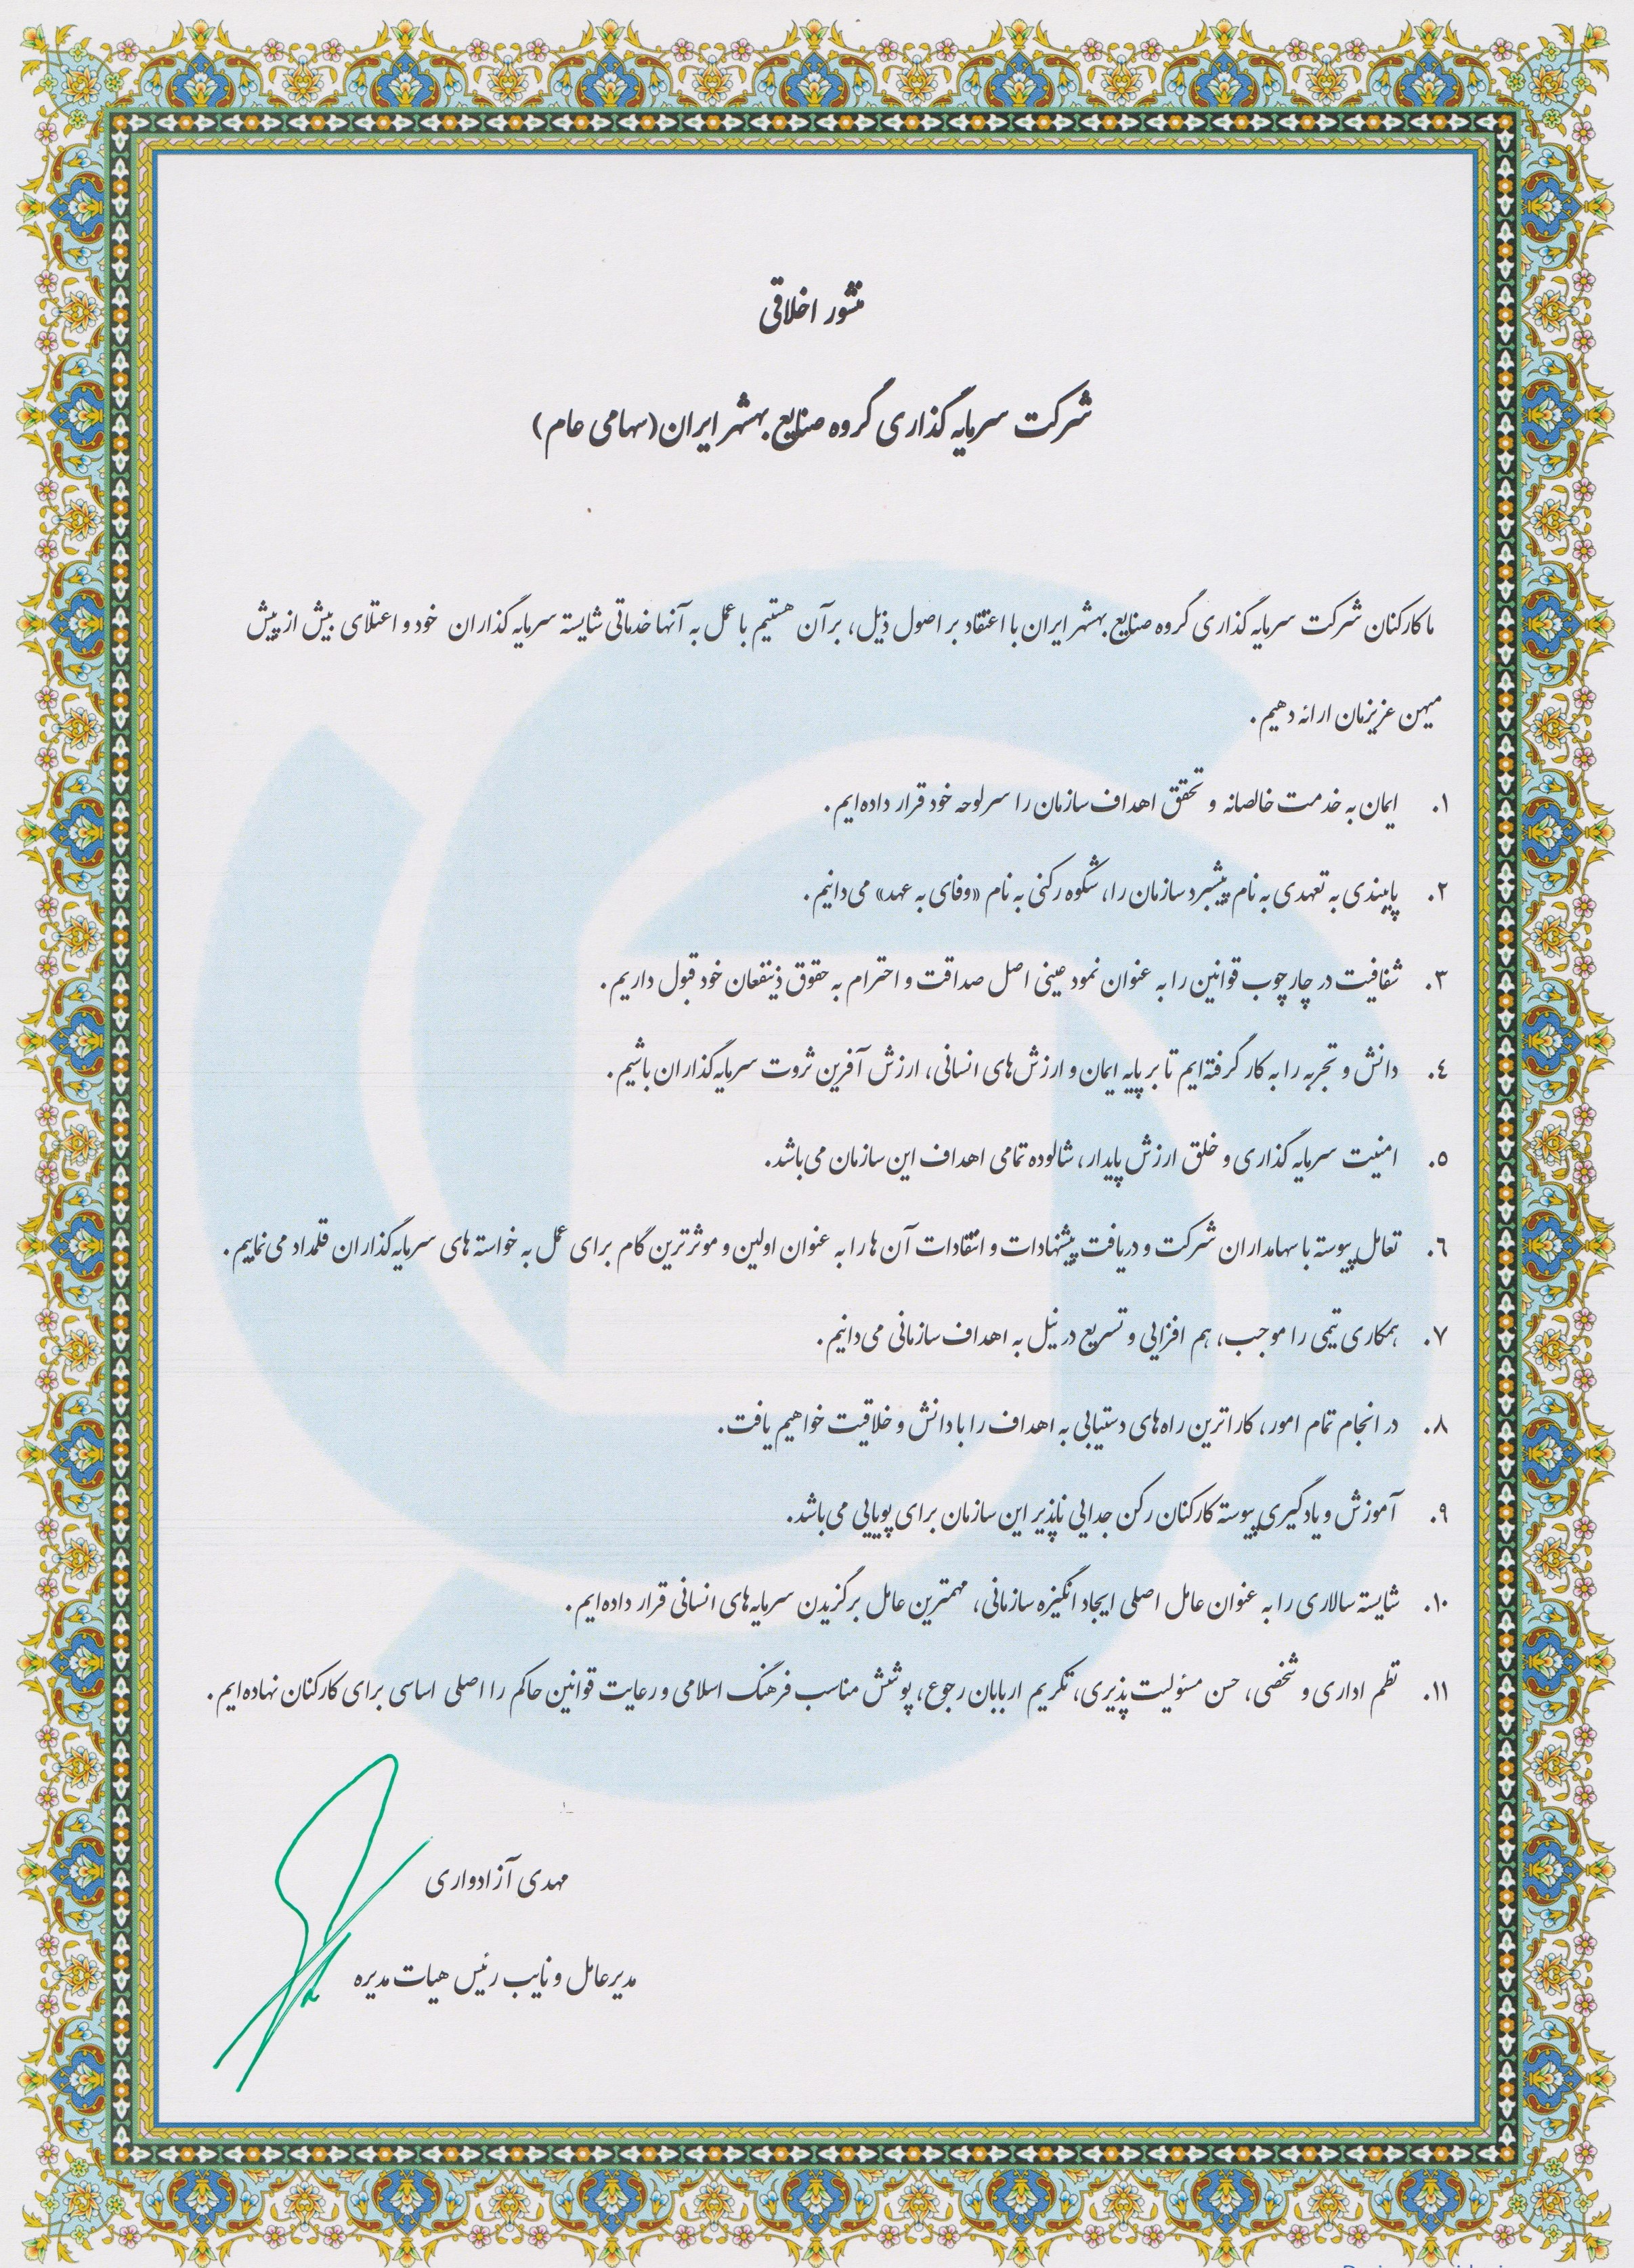 منشور اخلاقی
شرکت سرمایه گذاری گروه صنایع بهشهر ایران (سهامی عام)
ما کارکنان شرکت سرمایه گذاری گروه صنایع بهشهر ایران با اعتقاد بر اصول ذیل، برآن هستیم با عمل به آنها خدماتی شایسته سرمایه گذاران خود و اعتلای بیش از پیش
میهن عزیزمان ارائه دهیم.
۱. ایمان به خدمت خالصانه و تحقق اهداف سازمان را سرلوحه خود قرار داده‌ایم.
۲. پایبندی به تعهدی به نام پیشبرد سازمان را، شکوه رکنی به نام «وفای به عهد» می‌دانیم.
۳. شفافیت در چارچوب قوانین را به عنوان نمود عینی اصل صداقت و احترام به حقوق ذینفعان خود قبول داریم.
٤. دانش و تجربه را به کار گرفته‌ایم تا بر پایه ایمان و ارزش‌های انسانی، ارزش آفرین ثروت سرمایه‌گذاران باشیم.
٥. امنیت سرمایه گذاری و خلق ارزش پایدار، شالوده تمامی اهداف این سازمان می‌باشد.
٦. تعامل پیوسته با سهامداران شرکت و دریافت پیشنهادات و انتقادات آن ها را به عنوان اولین و موثرترین گام برای عمل به خواسته های سرمایه‌گذاران قلمداد می‌نماییم.
۷. همکاری تیمی را موجب، هم افزایی و تسریع در نیل به اهداف سازمانی می‌دانیم.
۸. در انجام تمام امور، کاراترین راه‌های دستیابی به اهداف را با دانش و خلاقیت خواهیم یافت.
۹. آموزش و یادگیری پیوسته کارکنان رکن جدایی ناپذیر این سازمان برای پویایی می‌باشد.
۱۰. شایسته سالاری را به عنوان عامل اصلی ایجاد انگیزه سازمانی، مهمترین عامل برگزیدن سرمایه‌های انسانی قرار داده‌ایم.
۱۱. نظم اداری و شخصی، حسن مسئولیت پذیری، تکریم اربابان رجوع، پوشش مناسب فرهنگ اسلامی و رعایت قوانین حاکم را اصلی اساسی برای کارکنان نهاده‌ایم.
مهدی آزادواری
مدیرعامل و نایب رئیس هیات مدیره